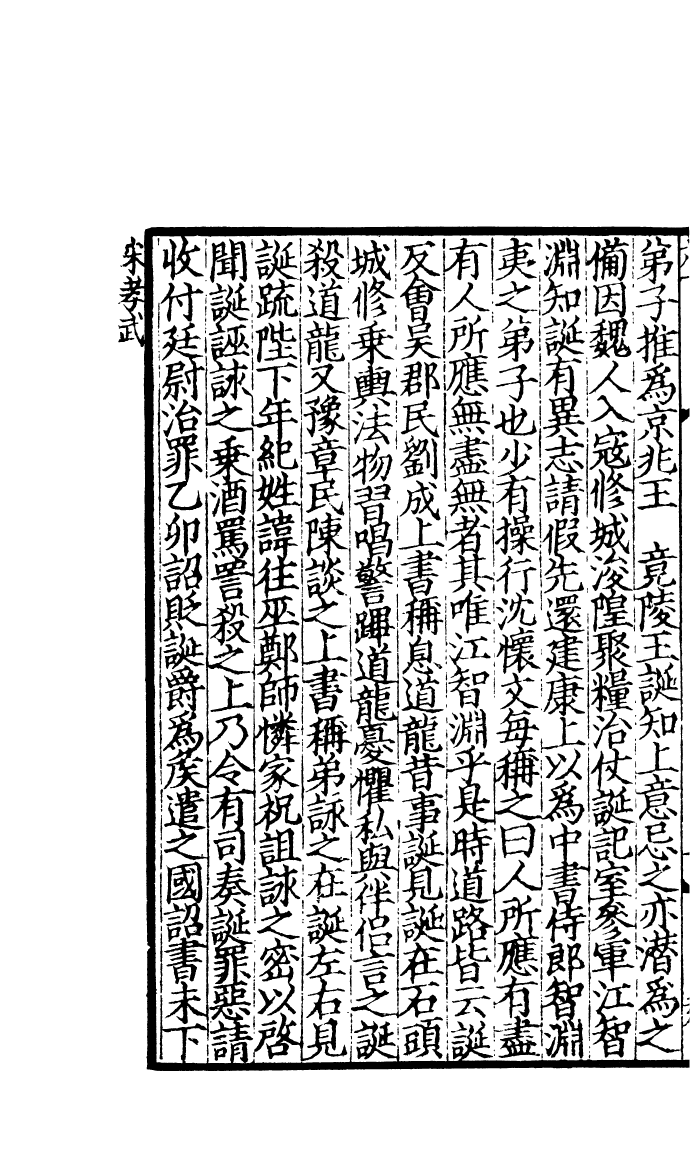 弟子推爲京兆王　竟陵王誕知上意忌之亦潜爲之
備因魏人入宼修城浚隍聚糧治仗誕記室參軍江智
淵知誕有異志請假先還建康上以爲中書侍郎智淵
夷之弟子也少有操行沈懷文每稱之曰人所應有盡
有人所應無盡無者其唯江智淵乎是時道路皆云誕
反會吳郡民劉成上書稱息道龍昔事誕見誕在石頭
城修乗輿法物習唱警蹕道龍憂懼私與伴侣言之誕
殺道龍又豫章民陳談之上書稱弟詠之在誕左右見
誕䟽陛下年紀姓諱往巫鄭師憐家祝詛詠之密以啓
聞誕誣詠之乗酒罵詈殺之上乃令有司奏誕罪惡請
收付廷尉治罪乙卯詔貶誕爵爲矦遣之國詔書未下
宋孝武